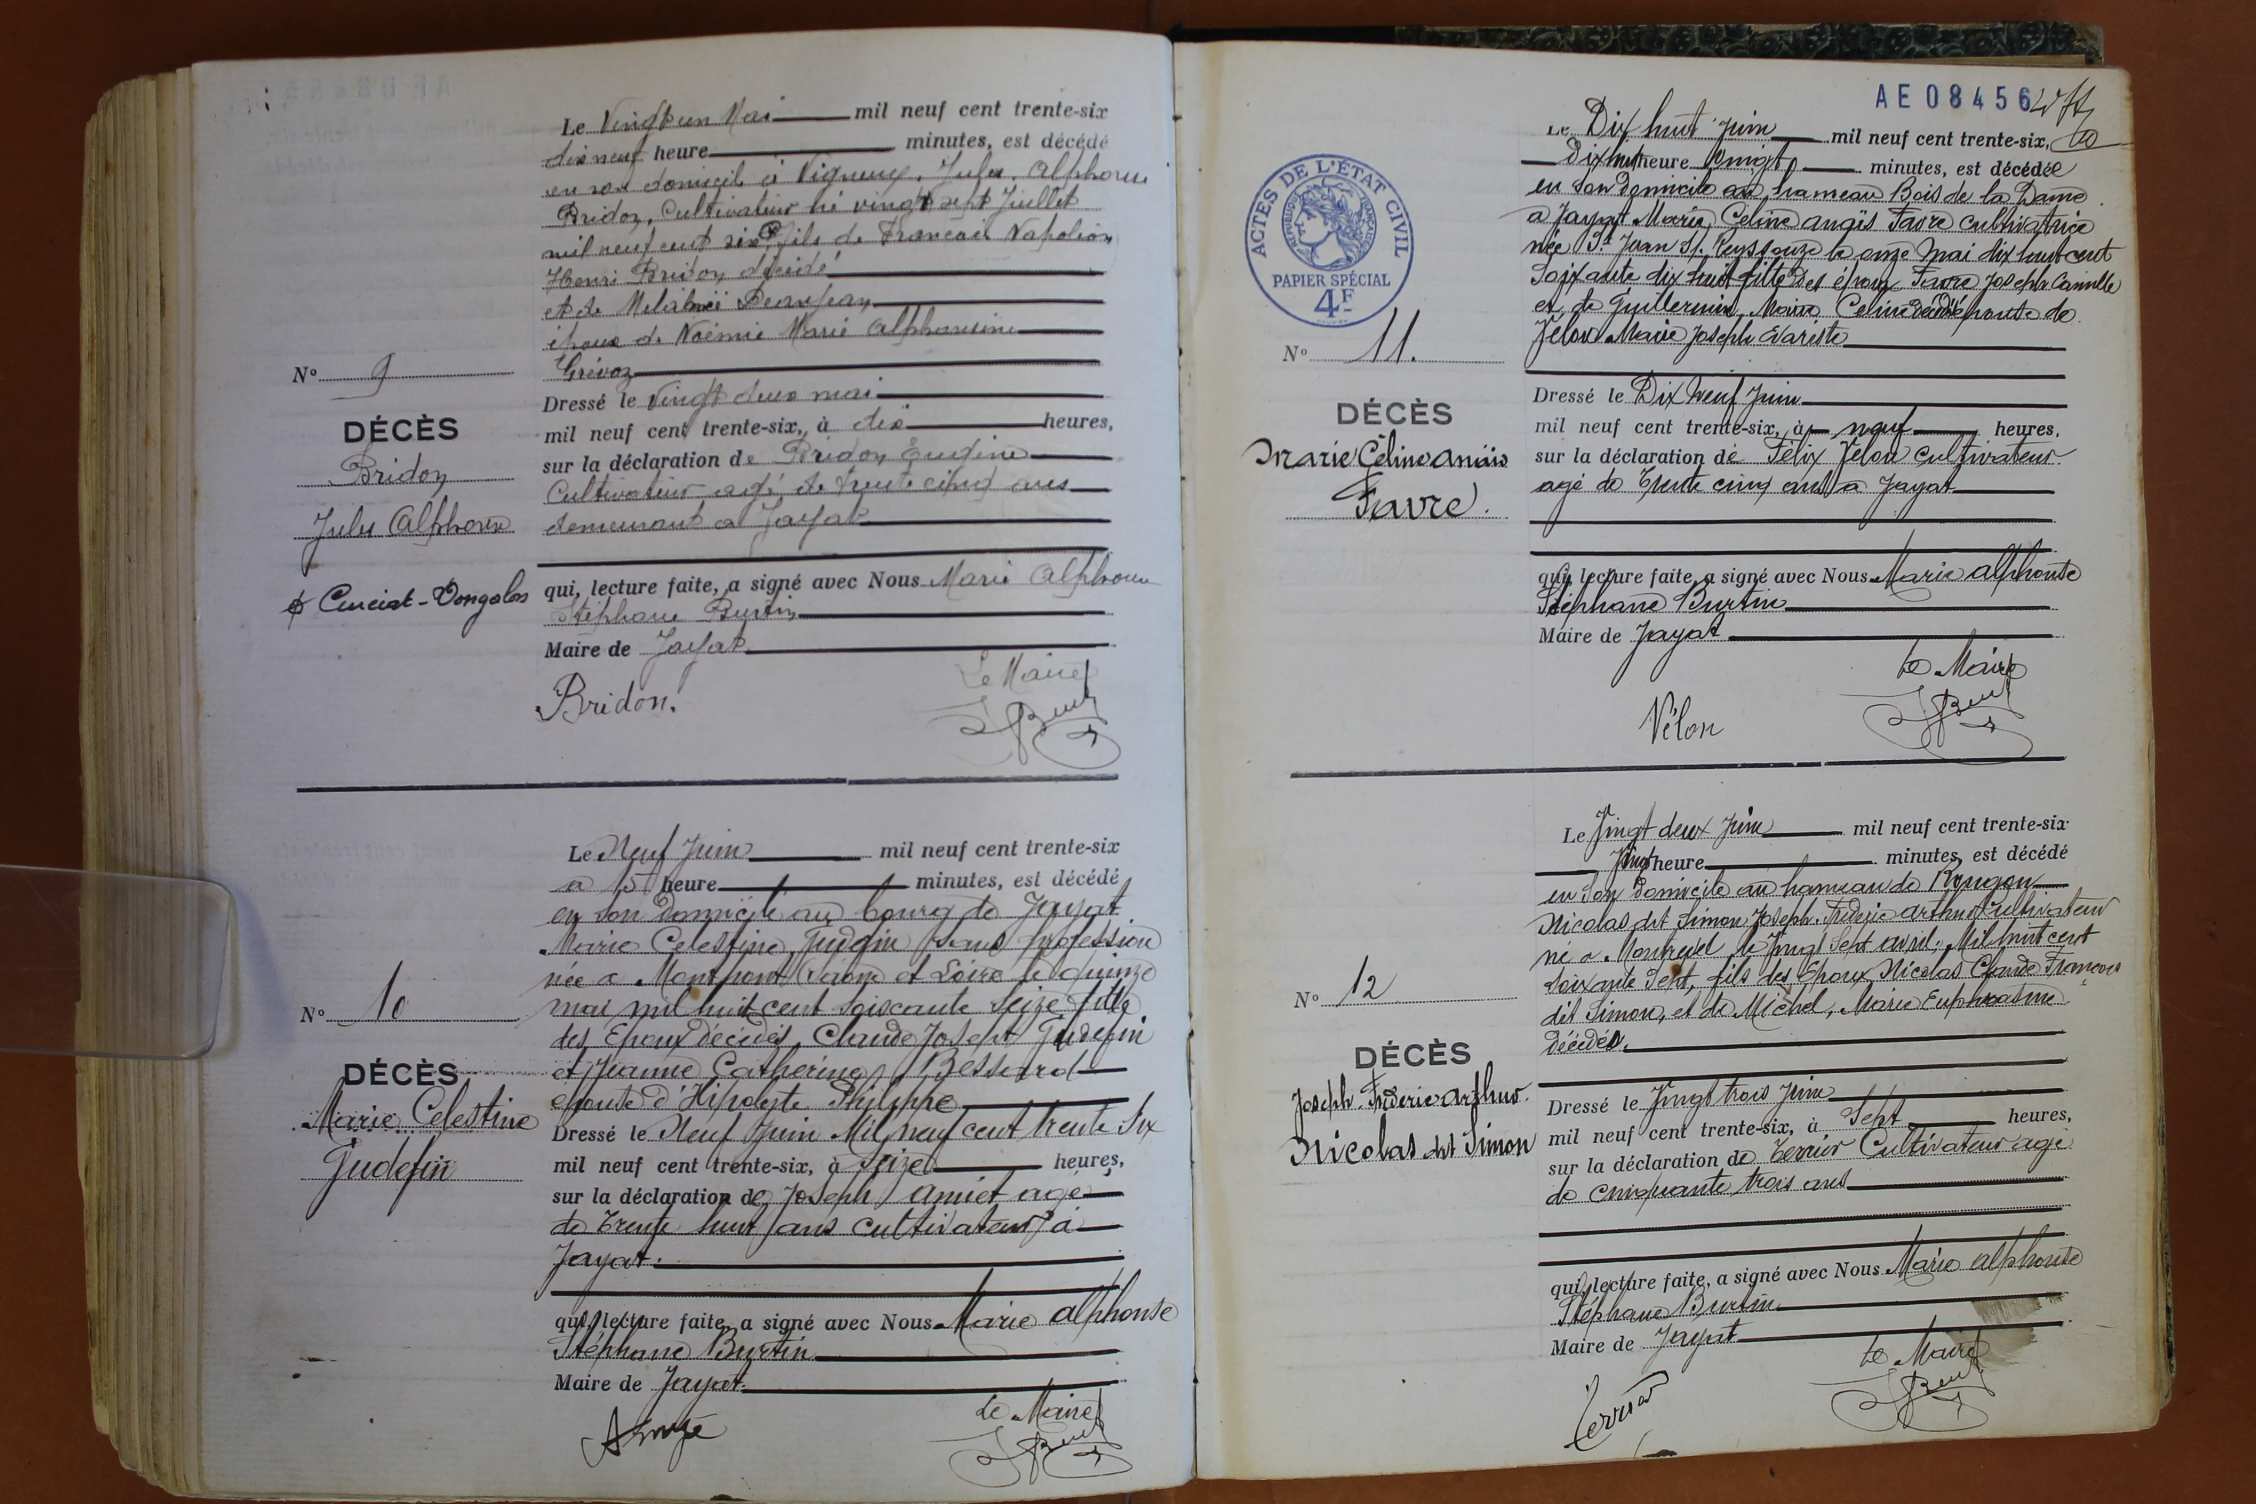 Le Vingt un Mai mil neuf cent trente-six
dix neuf heure minutes, est décédé
en son domicile à Vigneux, Jules, Alphonse
Bridon, Cultivateur né vingt sept Juillet
mil neuf cent six ¢ fils de Francois Napoléon
Henri Bridon décédé
et de Beaujean
époux de Noémie Marie Alphonsine
Grévoz
N° 9
Dressé le Vingt deux mai
DÉCÈS
mil neuf cent trente-six, à dix heures,
Bridon
sur la déclaration de Bridon Eugène
Cultivateur agé de trente cinq ans
Jules Alphonse
demeurant a Jayat
¢ Curciat-Dongalon
qui, lecture faite, a signé avec Nous Marie Alphonse
Stéphane Burtin
Maire de Jayat
Le Maire
Bridon.
Le Neuf Juin mil neuf cent trente-six
a 15 heure minutes, est décédé
en son domicile au bourg de Jayat
Marie Celestine Gudefin sans profession
née a Montpont Saône et Loire le quinze
mai mil huit cent soixante seize fille
N° 10
des Epoux décédés, Claude Joseph Gudefin
et Jeanne Catherine Bessard
DÉCÈS
épouse d'Hipolyte Philippe
Marie Celestine
Gudefin
Dressé le Neuf Juin Mil neuf cent trente Six
mil neuf cent trente-six, à Seize heures,
sur la déclaration de Joseph Amiet agé
de Trente huit ans cultivateur à
Jayat.
qui, lecture faite, a signé avec Nous Marie alphonse
Stéphane Burtin
Maire de Jayat
Le Maire
AE 08456
Le Dix huit Juin mil neuf cent trente-six,
Dix huit heure Vingt minutes, est décédée
en son domicile au hameau Bois de la Dame
a Jayat Marie, Celine anaïs Favre cultivatrice
née St Jean S/. Reyssouze le onze Mai dix huit cent
Soixante dix huit fille des époux Favre Joseph Camille
et de Guillermin Marie Celine décédé épouse de
Vélon Marie Joseph Evariste
ACTES DE L'ÉTAT CIVIL
RÉPUBLIQUE FRANÇAISE
PAPIER SPÉCIAL
4F
N° 11.
DÉCÈS
Marie Céline anaïs
Favre.
Dressé le Dix Neuf Juin
mil neuf cent trente-six, à neuf heures,
sur la déclaration de Félix Vélon cultivateur
agé de Trente cinq ans a Jayat
qui, lecture faite, a signé avec Nous Marie alphonse
Stéphane Burtin
Maire de Jayat
Le Maire
Vélon
Le Vingt deux Juin mil neuf cent trente-six
Vingt heure minutes, est décédé
en son Domicile au hameau de Rongon
Nicolas dit Simon Joseph. Frédéric arthur Cultivateur
né a Montrevel le Vingt Sept avril, Mil huit cent
soixante Sept, fils des Epoux Nicolas Claude François
dit Simon, et de Michel, Marie Euphrasine
décédés.
N° 12
DÉCÈS
Joseph. Frédéric arthur.
Nicolas dit Simon
Dressé le Vingt trois Juin
mil neuf cent trente-six, à Sept heures,
sur la déclaration de Terrier Cultivateur agé
de cinquante trois ans
qui, lecture faite, a signé avec Nous Marie alphonse
Stéphane Burtin
Maire de Jayat
Le Maire
Terrier